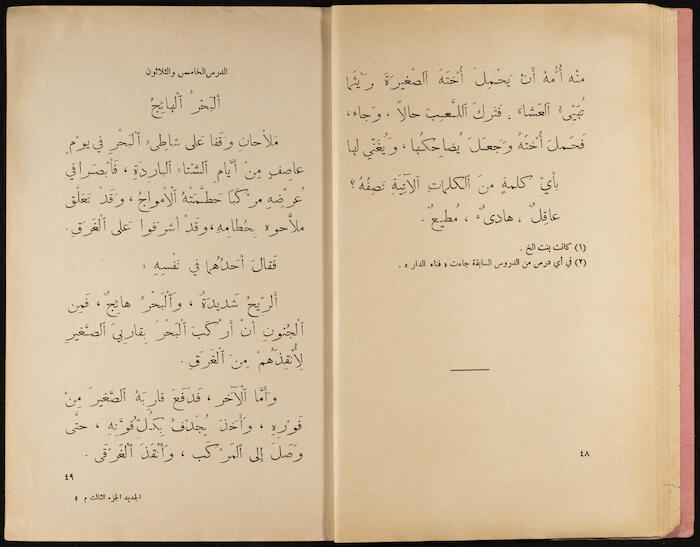 منْه أُمُّهُ أَنْ يَحْمِلَ أُخْتَهُ الصَّغيرَةَ رَيْثَما
تُهَيِّئُ الْعَشاءَ . فَتَركَ اللَّعِبَ حالاً ، وَجاء،
فَحَملَ أُخْتَهُ وَجَعَلَ يُضاحِكُها، وَيُغَنّي لها
بأيِّ كَلمةٍ منَ الكَلماتِ الآتِيَةِ تَصفُهُ؟
عاقِلٌ ، هادىءٌ ، مُطيعٌ .
(١) كانت بنت الخ .
(٢) في أي درس من الدروس السابقة جاءت « فناء الدار » .
٤٨
الدرس الخامس والثلاثون
اَلبَحْرُ الْهائِجُ
مَلاّحانِ وَقَفا عَلى شاطىءِ الْبَحْرِ في يومٍ
عاصِفٍ مِنْ أيّامِ الشِّتاءِ الْباردَةِ ، فَأَبْصَرا في
عُرضِهِ مرْكَباً حَطَّمَتْهُ الأَمْواجُ ، وَقَدْ تَعَلّق
ملاّحوه بِحُطامِهِ، وَقَدْ أَشرَفوا عَلى الْغَرَقِ.
فَقالَ أحَدُهُما في نَفْسِهِ :
أَلرّيحُ شَديدَةٌ ، وَالْبَحْرُ هائِجٌ ، فَمِن
الْجُنونِ أَنْ أَرْكَبَ الْبَحْرَ بِقارِبيَ الصَّغير
لِأُنْقِذَهُمْ مِنَ الْغَرَقِ .
وَأَمّا الْآخَر ، فَدَفَعَ قارِبَهُ الصَّغيرَ مِنْ
فَوْرِهِ ، وَأَخَذَ يُجَدِّفُ بِكُلِّ قُوَّتِهِ ، حتّى
وَصَلَ إلى المَرْكَبِ ، وَأَنْقَذَ الْغَرْقى .
٤٩
الجديد الجزء الثالث م ٤